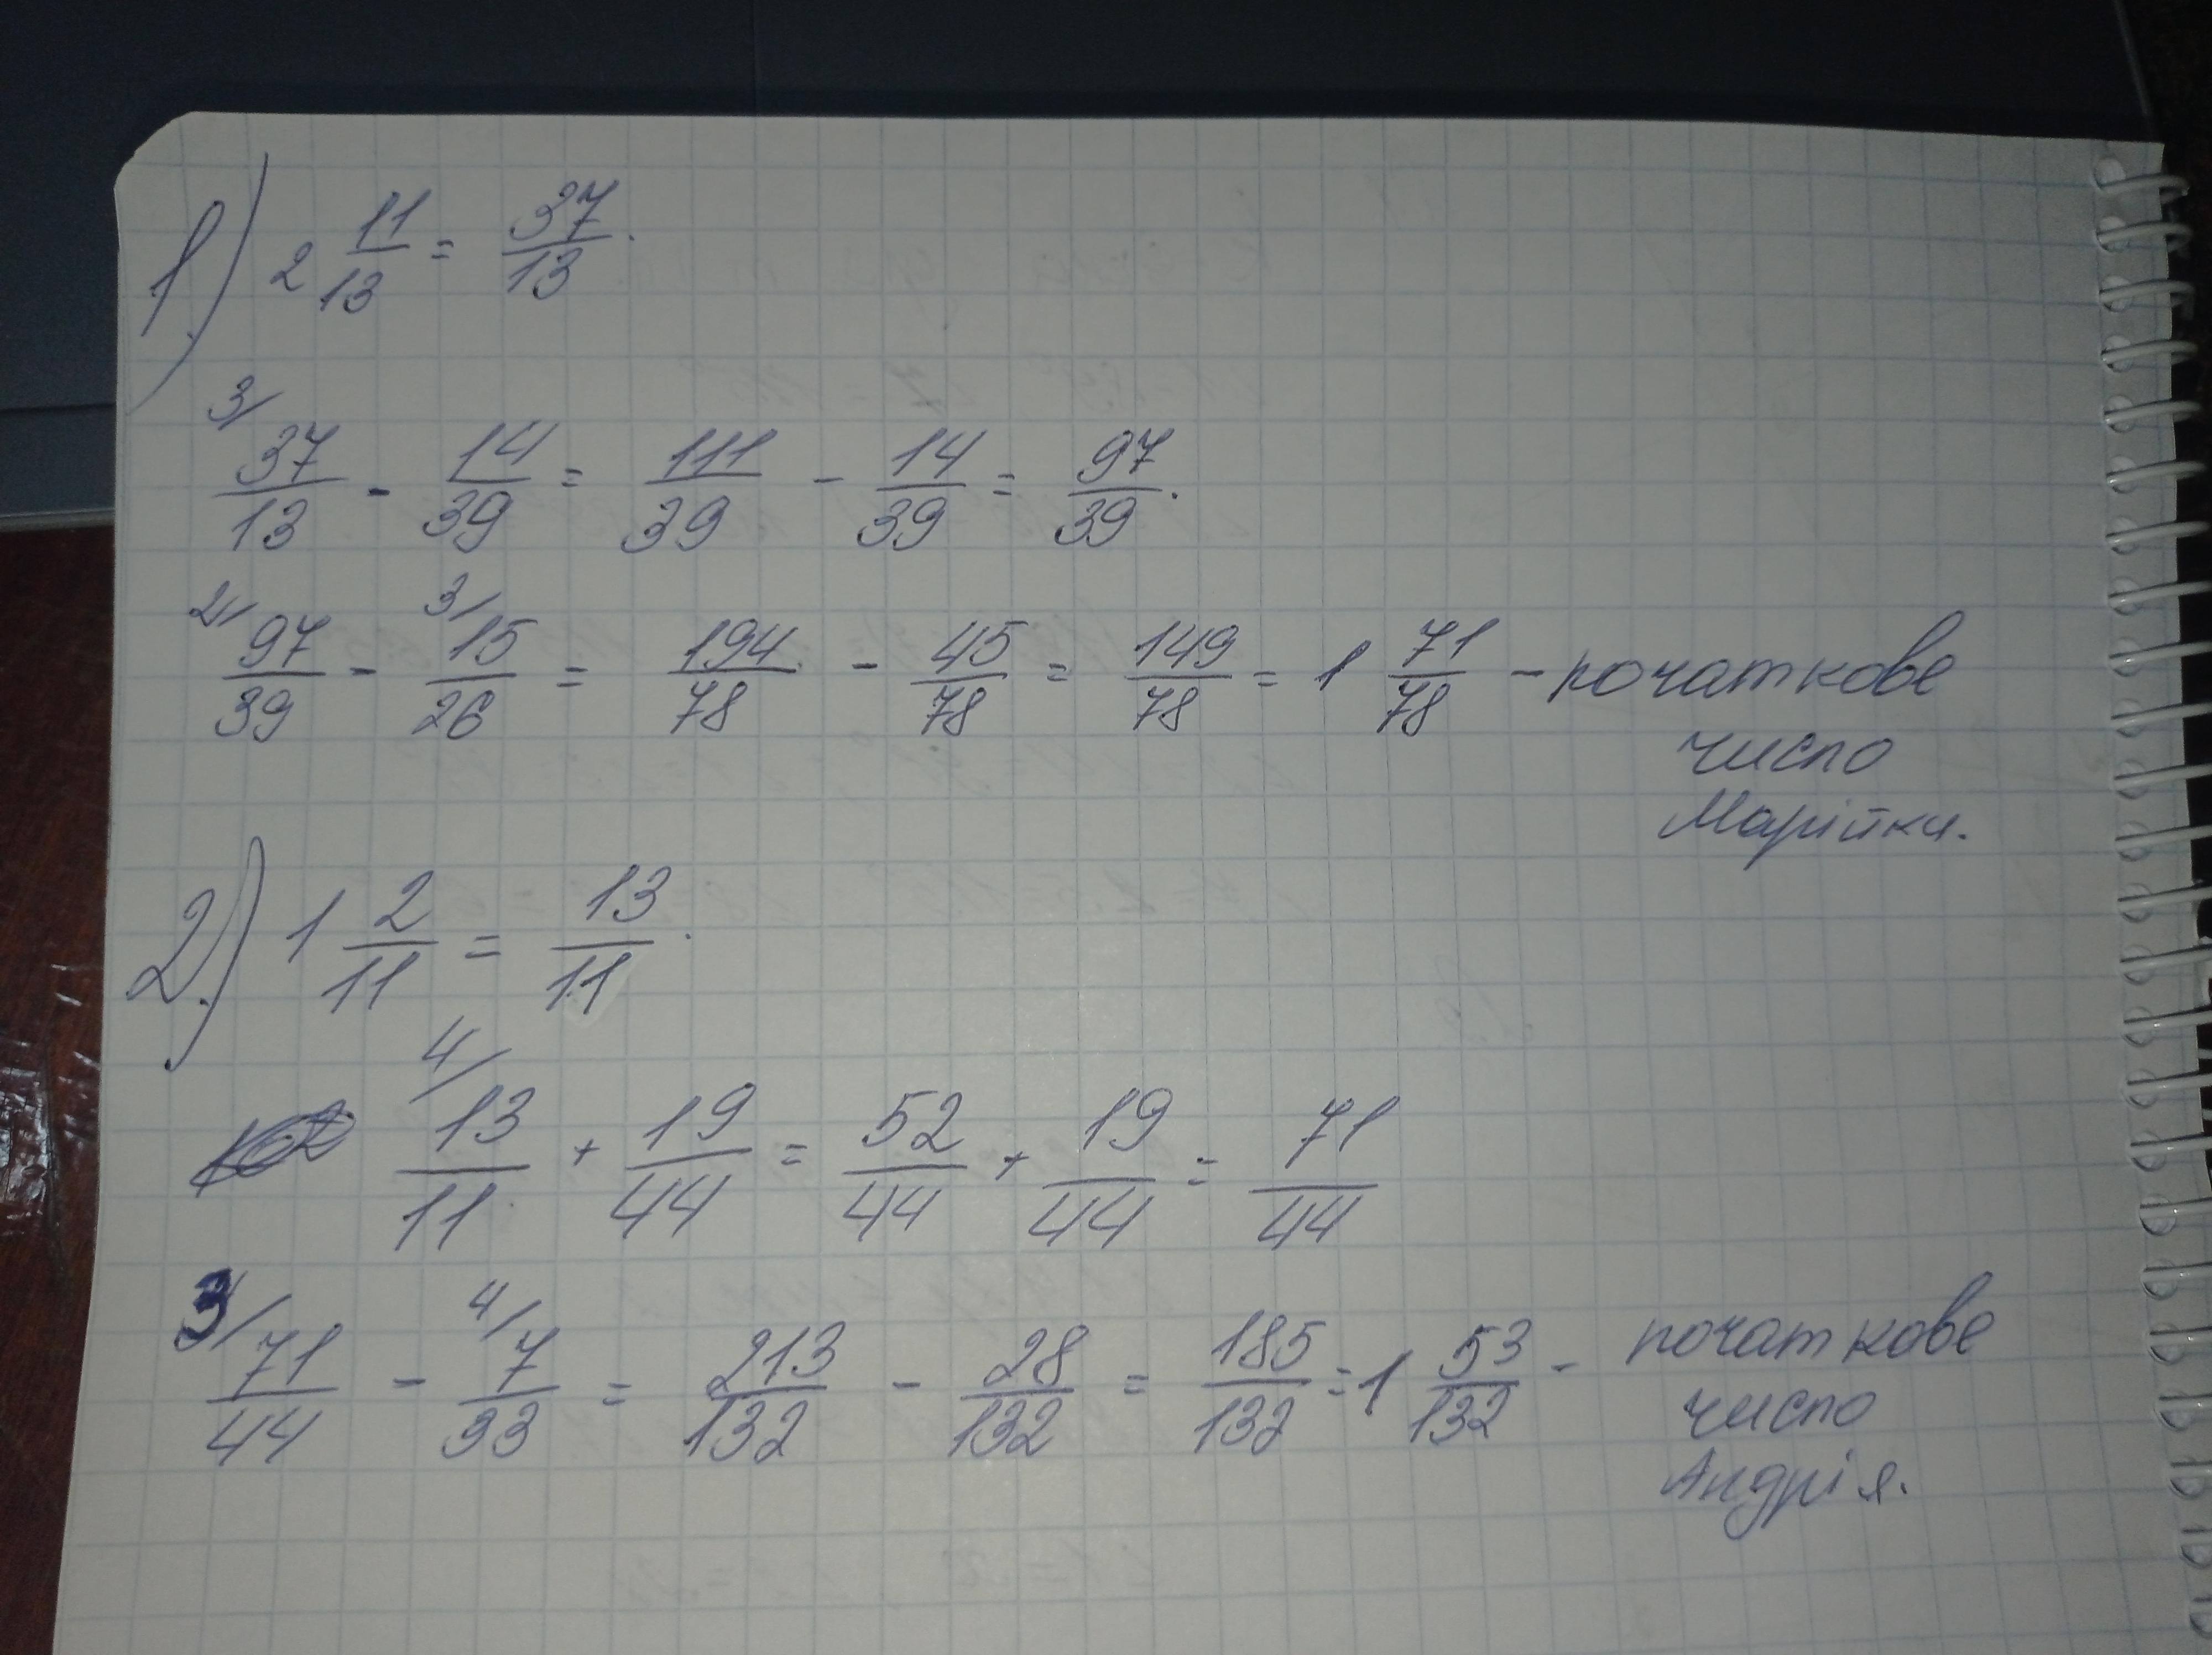 1.) 2 11/13 = 37/13.
3/ 37/13 - 14/39 = 111/39 - 14/39 = 97/39.
2/ 97/39 - 3/ 15/26 = 194/78 - 45/78 = 149/78 = 1 71/78 - початкове
число
Марійки.
2.) 1 2/11 = 13/11.
4/ 13/11 + 19/44 = 52/44 + 19/44 = 71/44
3/ 71/44 - 4/ 7/33 = 213/132 - 28/132 = 185/132 = 1 53/132 - початкове
число
Андрія.